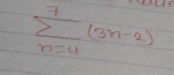 7
∑ (3n-2)
n=4